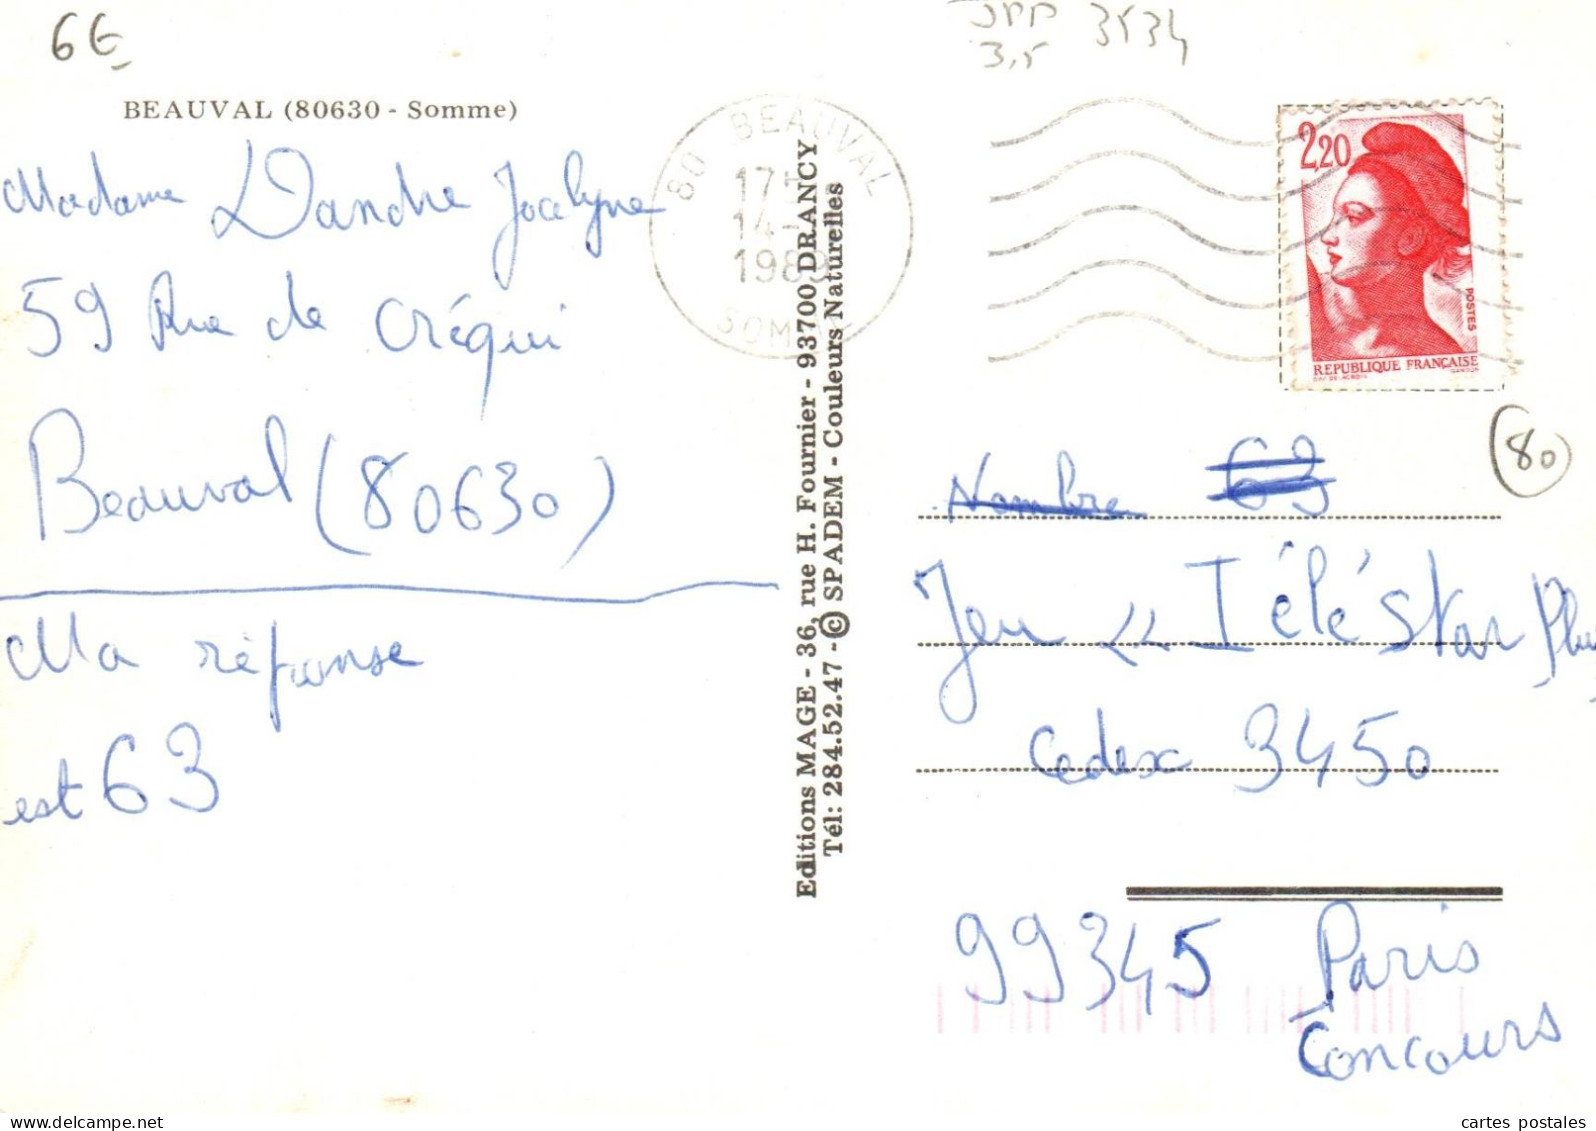 6€
3534
3,5
BEAUVAL (80630 - Somme)
Madame Dandre Jocelyne
59 Rue de Créqui
Beauval (80630)
Ma réponse
est 63
80 BEAUVAL
17 H
14 -
1989
SOMME
Editions MAGE - 36, rue H. Fournier - 93700 DRANCY
Tél: 284.52.47 - © SPADEM - Couleurs Naturelles
2,20
POSTES
REPUBLIQUE FRANÇAISE
(80)
Nombre 63
Jeu « Télé Star Plus
Cedex 3450
99345 Paris
Concours
cartes postales